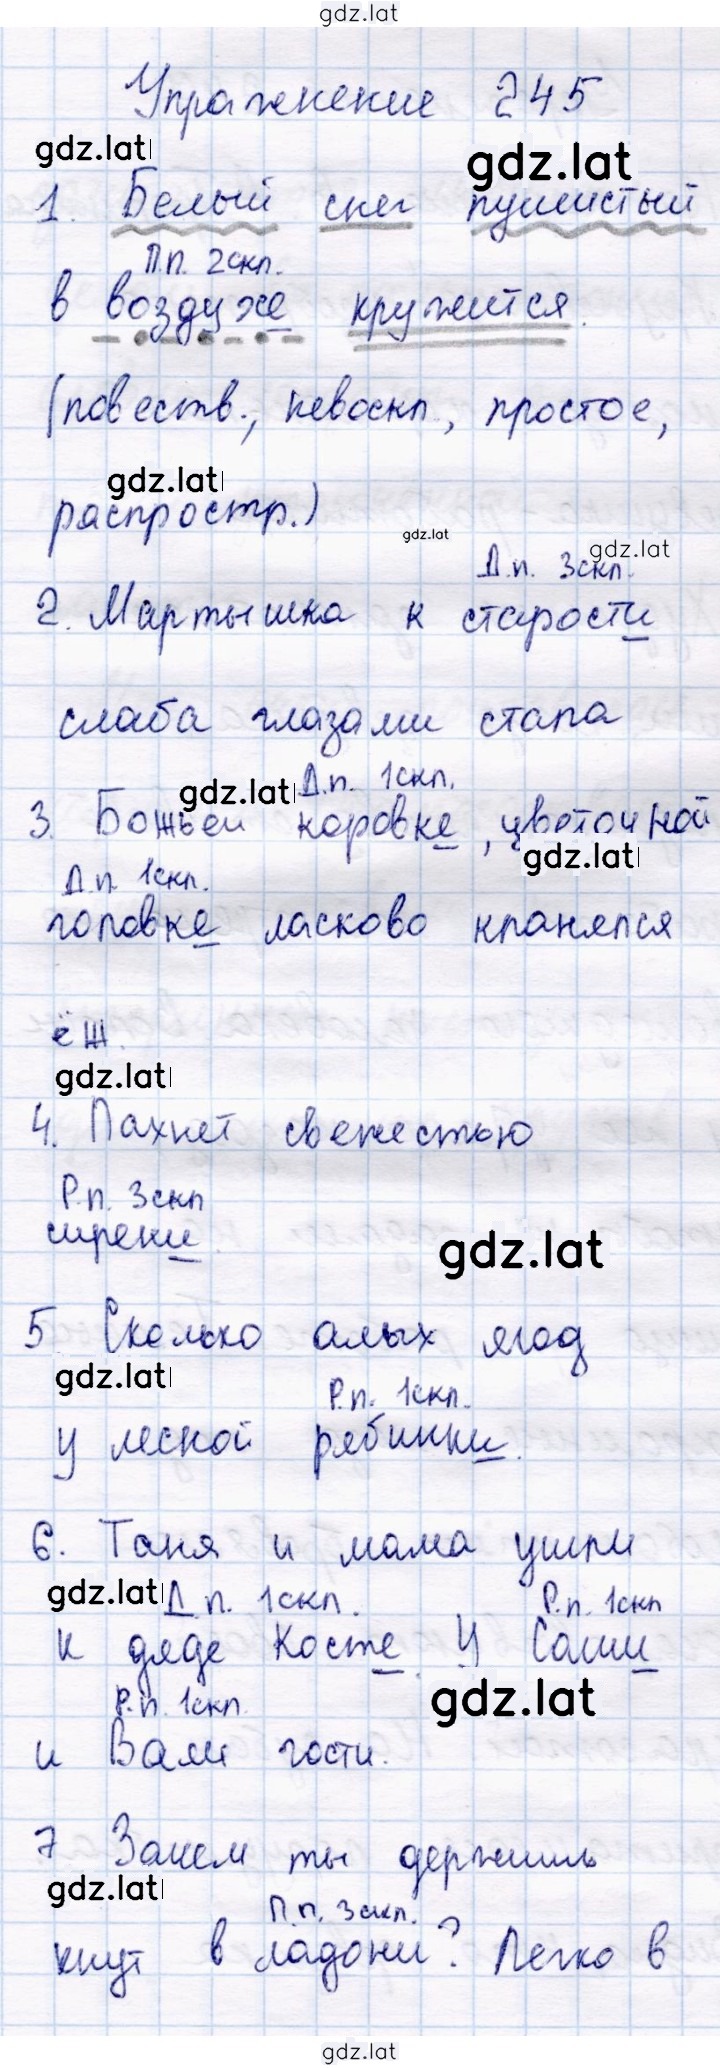 gdz.lat
Упражнение 245
gdz.lat gdz.lat
1. Белый снег пушистый
П.п. 2скл.
в воздухе кружится.
(повеств., невоскл., простое,
gdz.lat
распростр.)
gdz.lat gdz.lat
Д.п. 3скл.
2. Мартышка к старости
слаба глазами стала
gdz.lat Д.п. 1скл.
3. Божьей коровке, цветочной
gdz.lat
Д.п. 1скл.
головке ласково кланялся
ёж.
gdz.lat
4. Пахнет свежестью
Р.п. 3скл
сирени.
gdz.lat
5. Сколько алых ягод
gdz.lat Р.п. 1скл.
у лесной рябинки.
6. Таня и мама ушли
gdz.lat Д.п. 1скл. Р.п. 1скл
к дяде Косте. У Саши
Р.п. 1скл. gdz.lat
и Вали гости.
7 Зачем ты держишь
gdz.lat П.п. 3скл.
кнут в ладони? Легко в
gdz.lat